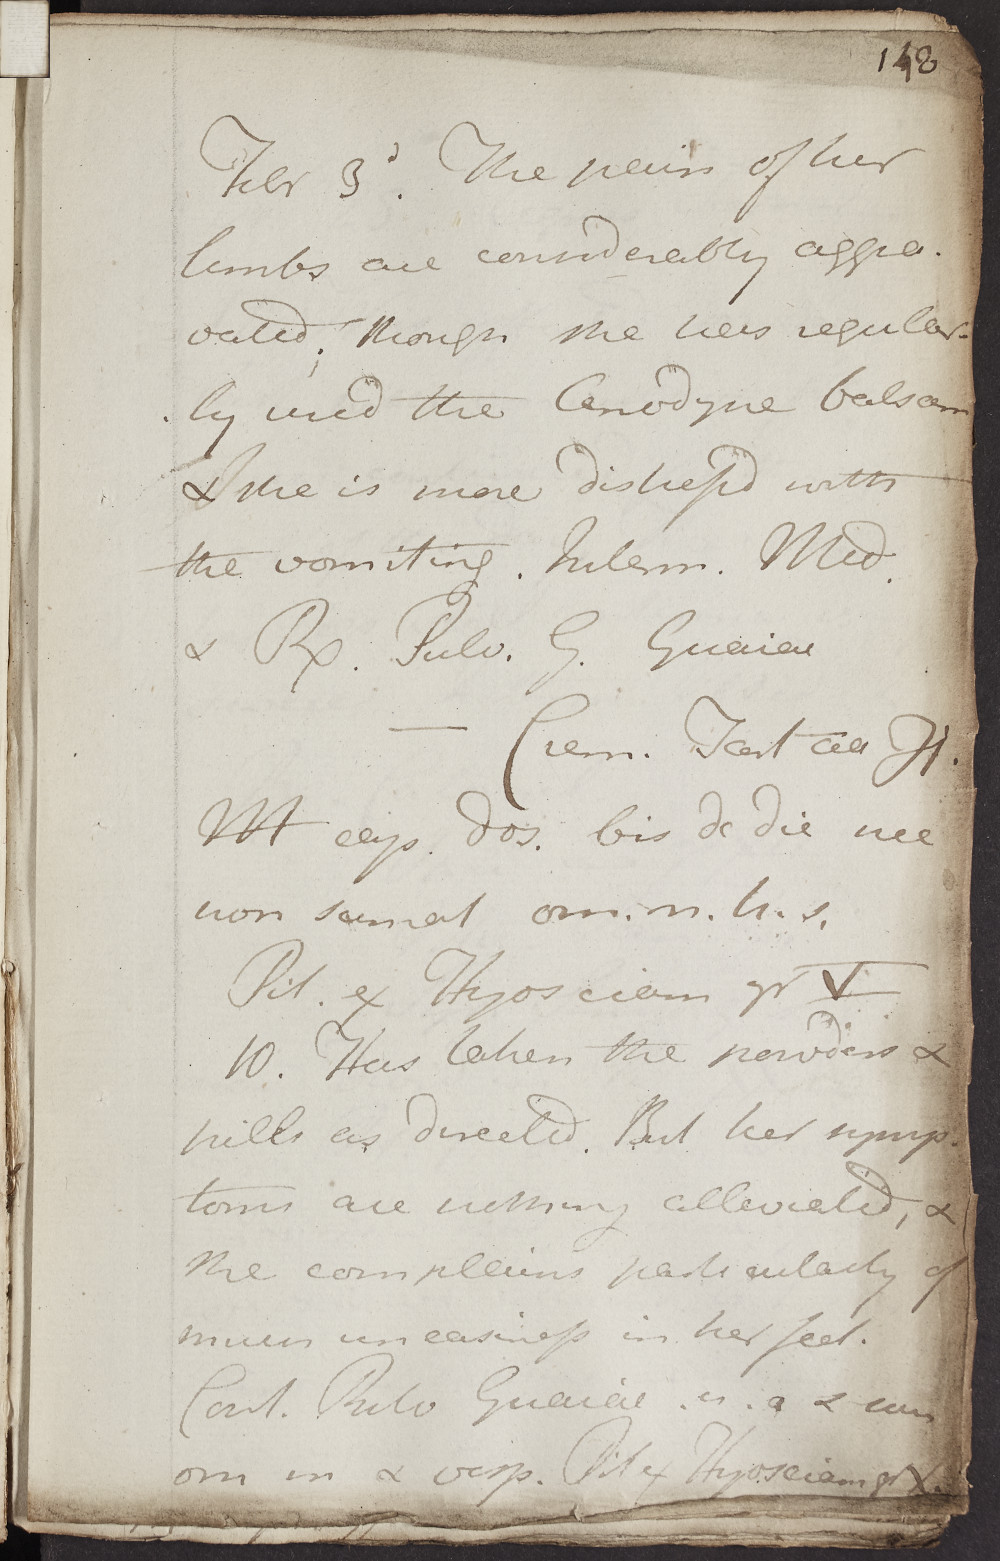 148
Febr 3d. The pains of her
limbs are considerably aggra-
vated, though she has regular-
ly used the Anodyne balsam
& she is more distressd with
the vomiting. Interm. Med.
& Rx. Pulv. G. Guaiac
— Crem. Tart aa ʒ1.
M cap. dos. bis de die nec
non sumat om. n. h. s.
Pil. ex Hyosciam gr V
10. Has taken the powders &
pills as directed. But her symp-
toms are nothing alleviated, &
she complains particularly of
much uneasiness in her feet.
Cont. Pulv Guaiac . u . a &
om m & vesp. Pil ex Hyosciam gr X.